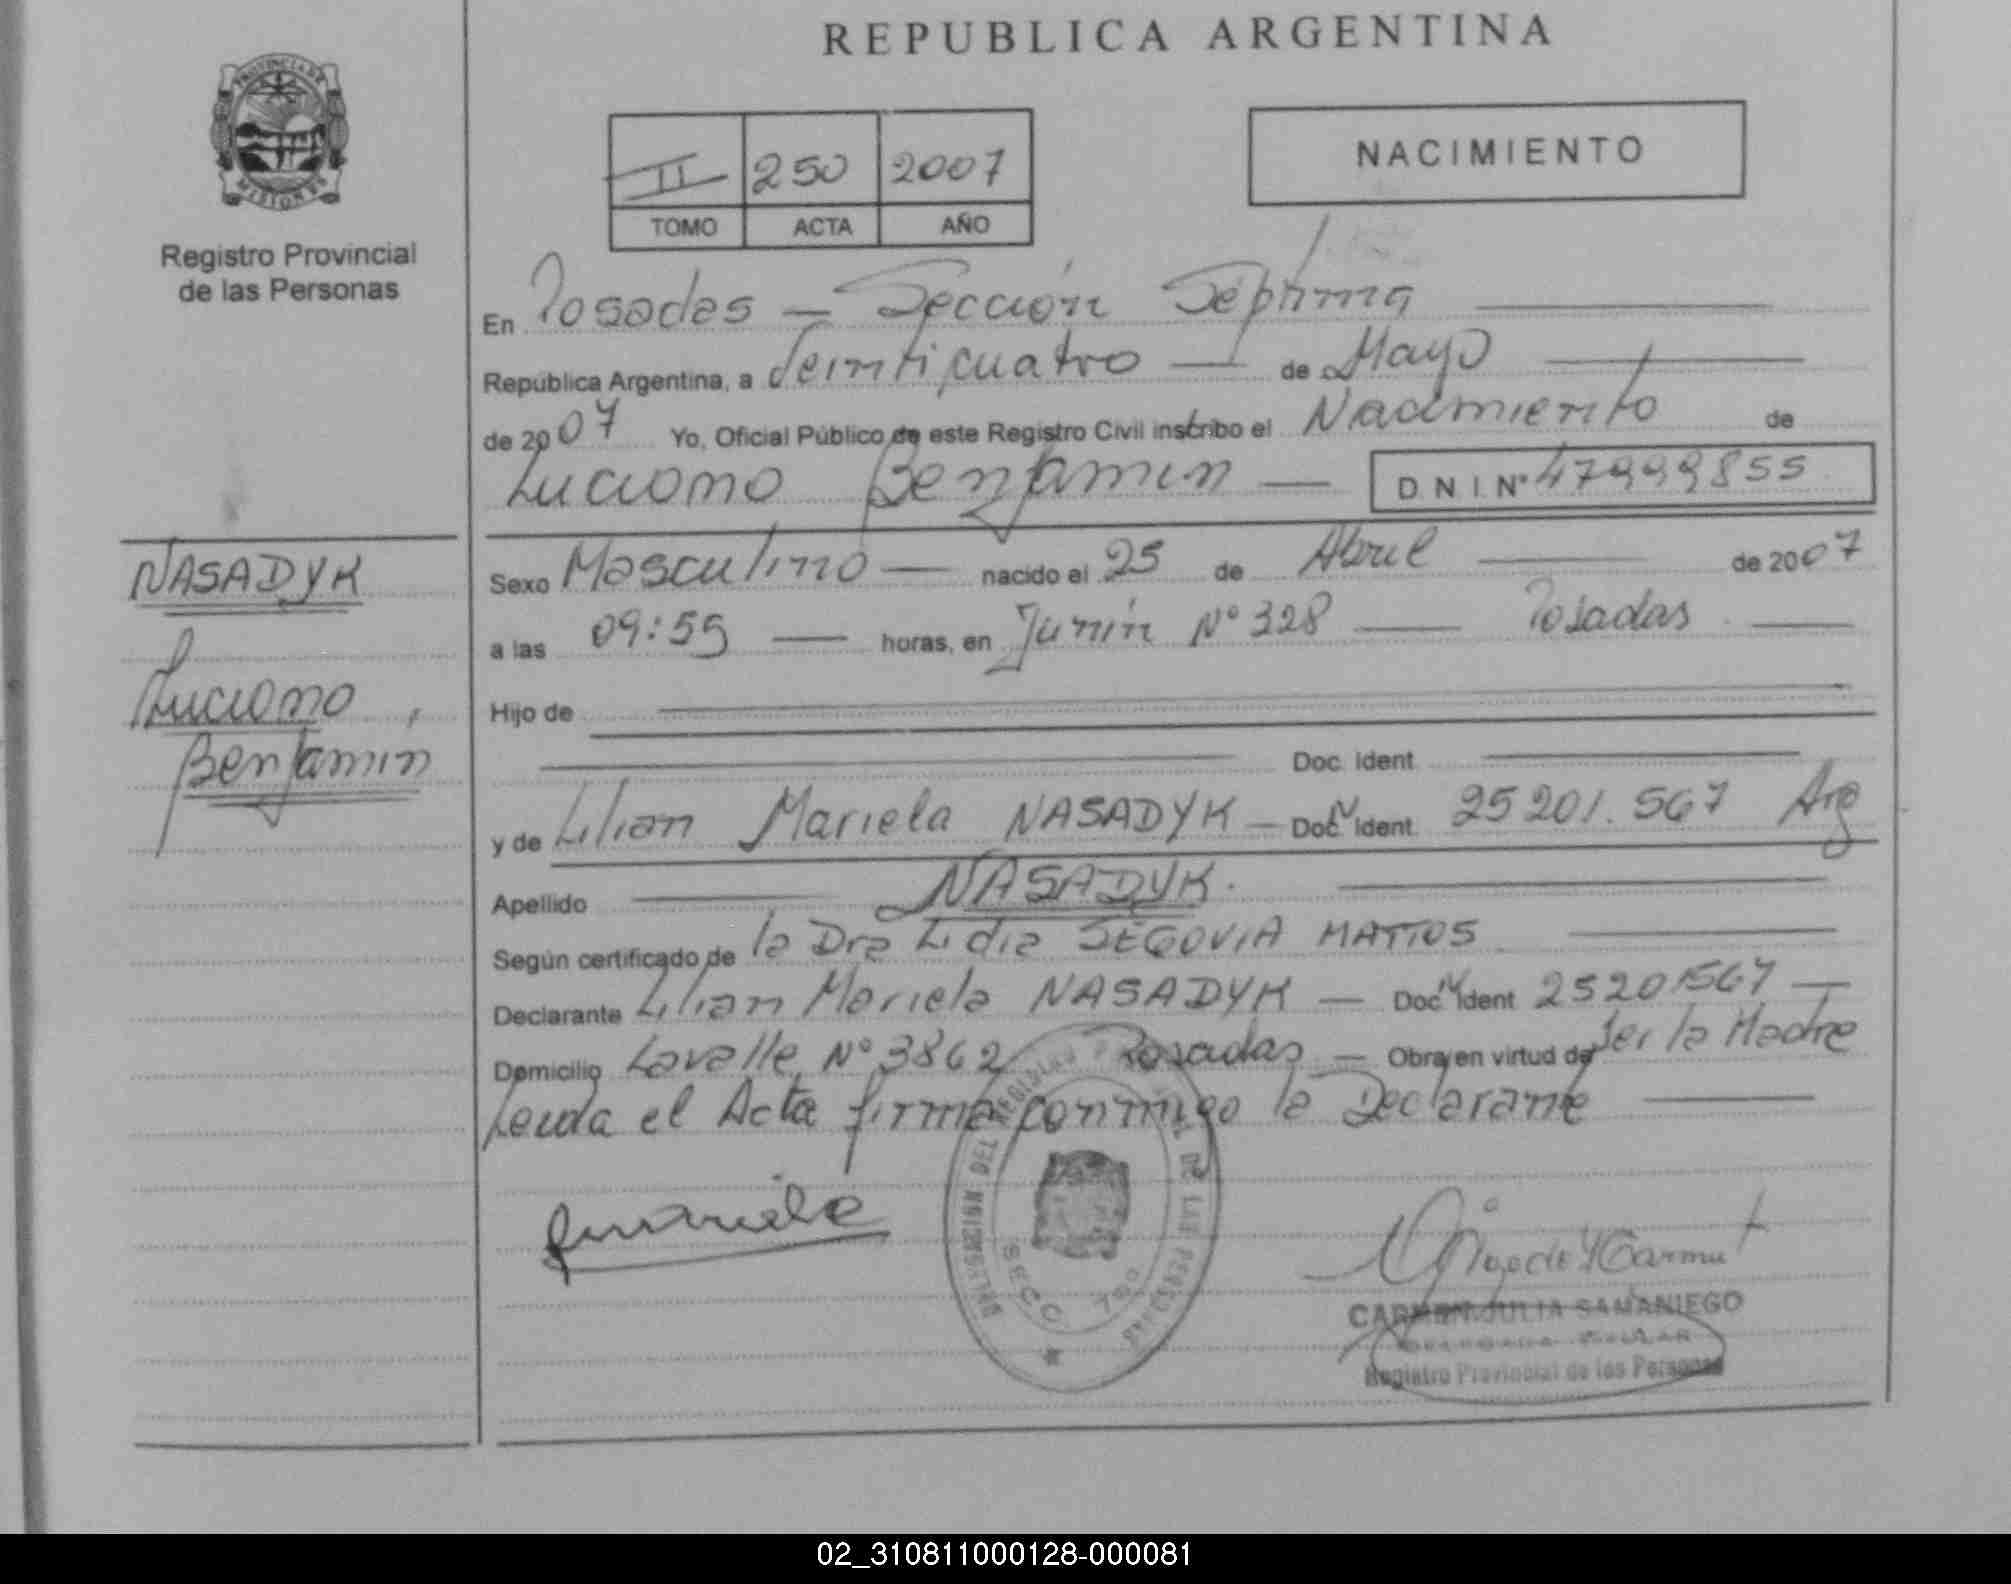 REPUBLICA ARGENTINA
PROVINCIA DE
MISIONES
Registro Provincial
de las Personas
II 250 2007
TOMO ACTA AÑO
NACIMIENTO
En Posadas — Sección Séptima
República Argentina, a Veinticuatro — de Mayo
de 2007 Yo, Oficial Público de este Registro Civil inscribo el Nacimiento de
Luciano Benjamin — D.N.I.N° 47999855
NASADYK
Luciano
Benjamín
Sexo Masculino — nacido el 25 de Abril de 2007
a las 09:55 — horas, en Junín N° 328 — Posadas —
Hijo de
Doc. Ident.
y de Lilian Mariela NASADYK — Doc. Ident. 25 201.567 Arg
Apellido NASADYK.
Según certificado de la Dra Lidia SEGOVIA MATTOS
Declarante Lilian Mariela NASADYK — Doc. Ident 25201567 —
Domicilio Lavalle N° 3862 Posadas — Obra en virtud de Ser la Madre
Leida el Acta firma conmigo la Declarante
DEL REGISTRO DE LAS PERSONAS
SECC. 7
CARMEN JULIA SAMANIEGO
Registro Provincial de las Personas
02_310811000128-000081